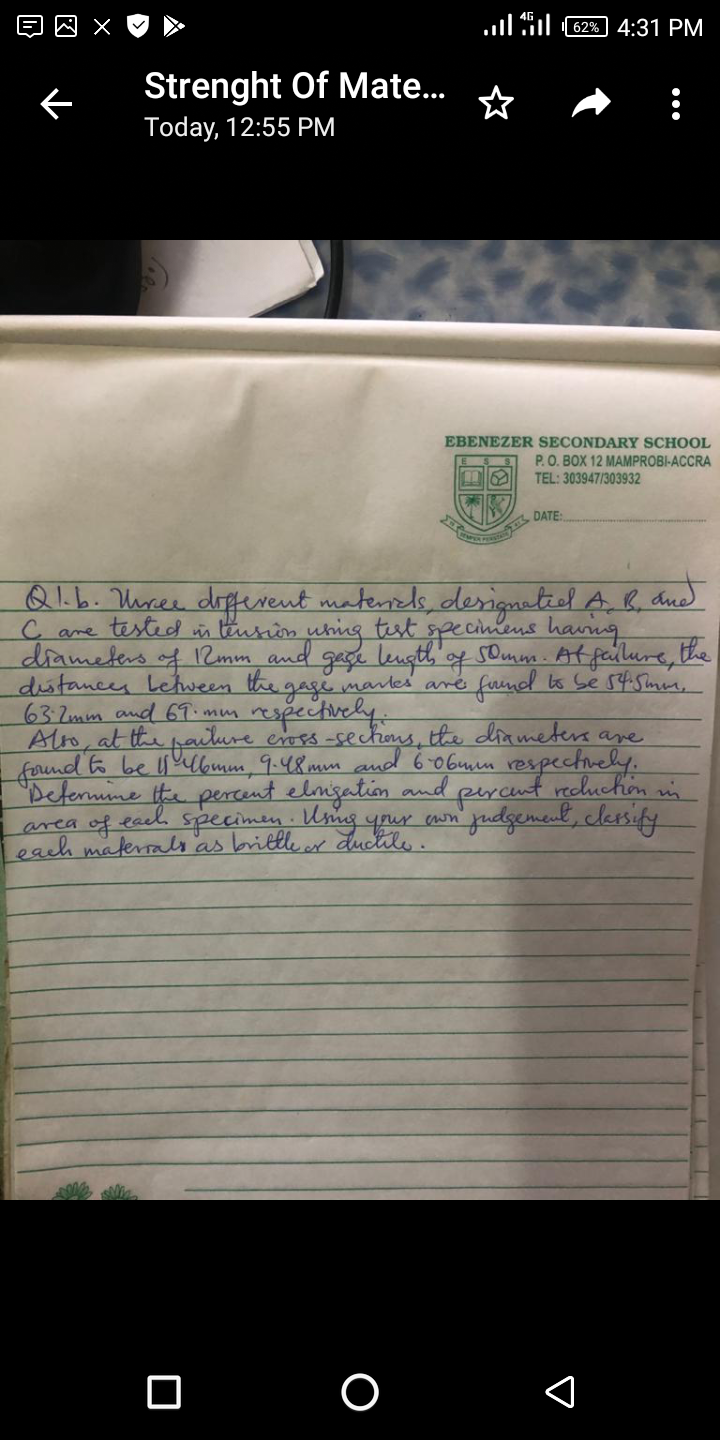 62% 4G 4:31 PM
Strenght Of Mate...
Today, 12:55 PM
EBENEZER SECONDARY SCHOOL
P. O. BOX 12 MAMPROBI-ACCRA
TEL: 303947/303932
E S S
DATE:
Q1.b. Three different materials, designated A, B, and
C are tested in tension using test specimens having
diameters of 12mm and gage length of 50mm. At failure, the
distances between the gage marks are found to be 54.5mm,
63.2mm and 69.mm respectively.
Also, at the failure cross-sections, the diameters are
found to be 11.46mm, 9.48mm and 6.06mm respectively.
Determine the percent elongation and percent reduction in
area of each specimen. Using your own judgement, classify
each materials as brittle or ductile.